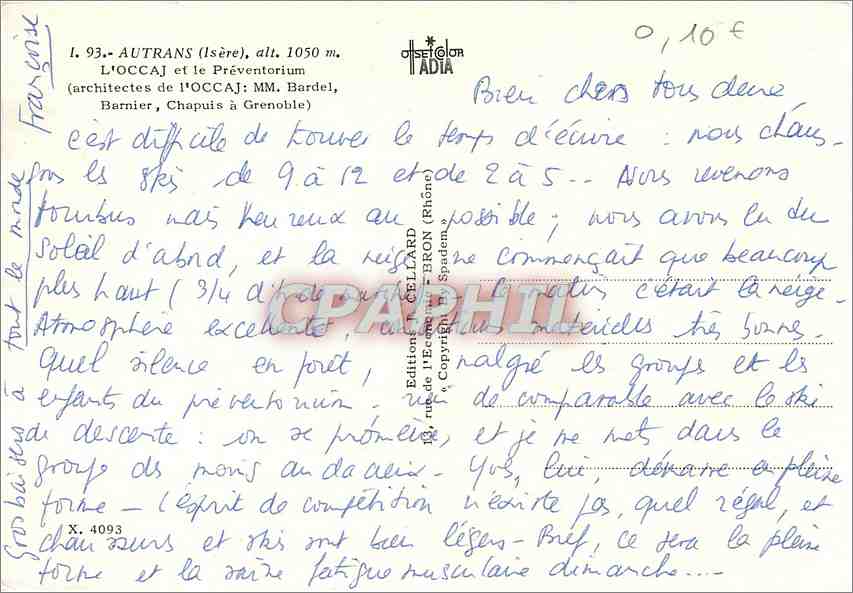 0,10 €
I. 93.- AUTRANS (Isère), alt. 1050 m.
L'OCCAJ et le Préventorium
(architectes de l'OCCAJ: MM. Bardel,
Barnier, Chapuis à Grenoble)
OFFSETCOLOR
IADIA
Bien chers tous deux
c'est difficile de trouver le temps d'écrire : nous chaus-
sons les skis de 9 à 12 et de 2 à 5 -- Nous revenons
fourbus mais heureux au possible ; nous avons eu du
soleil d'abord, et la neige ne commençait que beaucoup
plus haut (3/4 d'h de marche) - le matin c'était la neige-
Atmosphère excellente, conditions matérielles très bonnes-
Quel silence en forêt, malgré les groupes et les
enfants du préventorium - rien de comparable avec le ski
de descente : on se promène, et je me mets dans le
groupe des moins audacieux - Yves, lui, démarre en pleine
forme - l'esprit de compétition n'existe pas, quel régal, et
chaussures et skis sont bien légers - Bref, ce sera la pleine
forme et la saine fatigue musculaire dimanche....
X. 4093
Gros baisers à tout le monde
Françoise
Editions J. CELLARD
13, rue de l'Economie - BRON (Rhône)
" Copyright by Spadem "
CPAPHIL